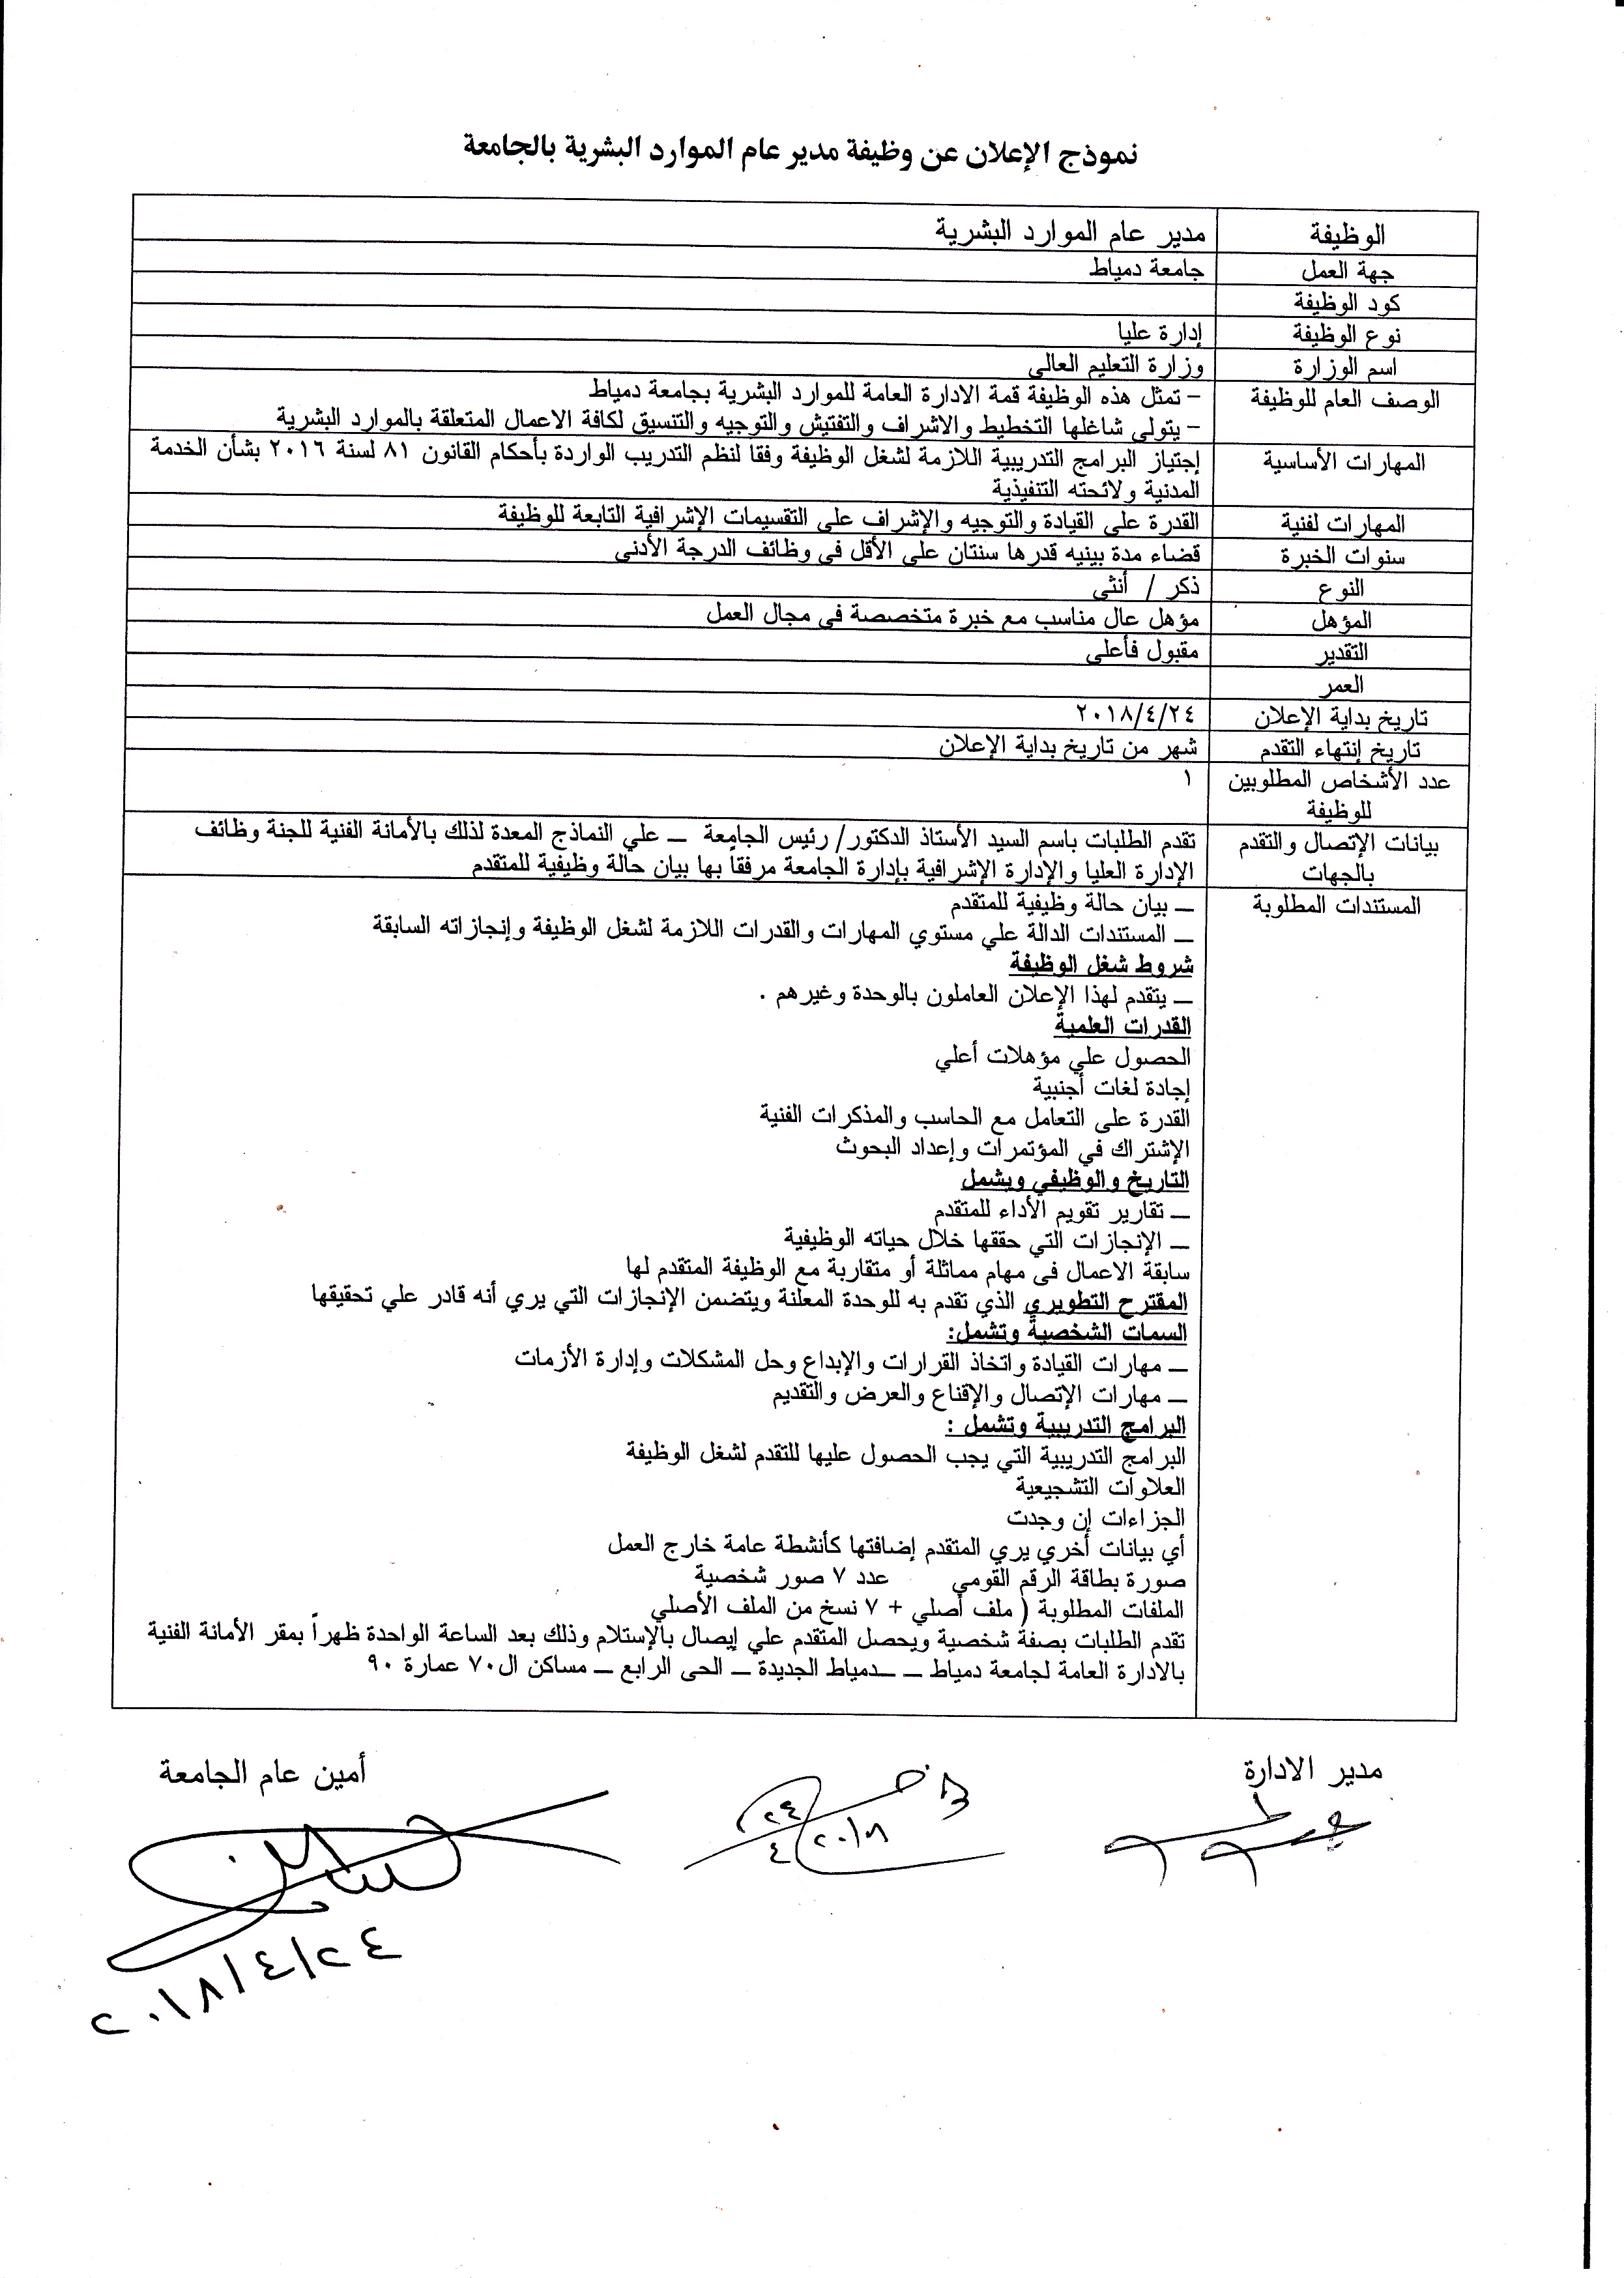 نموذج الإعلان عن وظيفة مدير عام الموارد البشرية بالجامعة
الوظيفة مدير عام الموارد البشرية
جهة العمل جامعة دمياط
كود الوظيفة
نوع الوظيفة إدارة عليا
اسم الوزارة وزارة التعليم العالى
الوصف العام للوظيفة – تمثل هذه الوظيفة قمة الادارة العامة للموارد البشرية بجامعة دمياط
– يتولى شاغلها التخطيط والاشراف والتفتيش والتوجيه والتنسيق لكافة الاعمال المتعلقة بالموارد البشرية
المهارات الأساسية إجتياز البرامج التدريبية اللازمة لشغل الوظيفة وفقا لنظم التدريب الواردة بأحكام القانون ٨١ لسنة ٢٠١٦ بشأن الخدمة
المدنية ولائحته التنفيذية
المهارات لفنية القدرة على القيادة والتوجيه والإشراف على التقسيمات الإشرافية التابعة للوظيفة
سنوات الخبرة قضاء مدة بينيه قدرها سنتان على الأقل فى وظائف الدرجة الأدنى
النوع ذكر / أنثى
المؤهل مؤهل عال مناسب مع خبرة متخصصة فى مجال العمل
التقدير مقبول فأعلى
العمر
تاريخ بداية الإعلان ٢٠١٨/٤/٢٤
تاريخ إنتهاء التقدم شهر من تاريخ بداية الإعلان
عدد الأشخاص المطلوبين ١
للوظيفة
بيانات الإتصال والتقدم تقدم الطلبات باسم السيد الأستاذ الدكتور/ رئيس الجامعة ــ علي النماذج المعدة لذلك بالأمانة الفنية للجنة وظائف
بالجهات الإدارة العليا والإدارة الإشرافية بإدارة الجامعة مرفقاً بها بيان حالة وظيفية للمتقدم
المستندات المطلوبة ــ بيان حالة وظيفية للمتقدم
ــ المستندات الدالة علي مستوي المهارات والقدرات اللازمة لشغل الوظيفة وإنجازاته السابقة
شروط شغل الوظيفة
ــ يتقدم لهذا الإعلان العاملون بالوحدة وغيرهم .
القدرات العلمية
الحصول علي مؤهلات أعلي
إجادة لغات أجنبية
القدرة على التعامل مع الحاسب والمذكرات الفنية
الإشتراك في المؤتمرات وإعداد البحوث
التاريخ والوظيفي ويشمل
ــ تقارير تقويم الأداء للمتقدم
ــ الإنجازات التي حققها خلال حياته الوظيفية
سابقة الاعمال فى مهام مماثلة أو متقاربة مع الوظيفة المتقدم لها
المقترح التطويري الذي تقدم به للوحدة المعلنة ويتضمن الإنجازات التي يري أنه قادر علي تحقيقها
السمات الشخصية وتشمل:
ــ مهارات القيادة واتخاذ القرارات والإبداع وحل المشكلات وإدارة الأزمات
ــ مهارات الإتصال والإقناع والعرض والتقديم
البرامج التدريبية وتشمل :
البرامج التدريبية التي يجب الحصول عليها للتقدم لشغل الوظيفة
العلاوات التشجيعية
الجزاءات إن وجدت
أي بيانات أخري يري المتقدم إضافتها كأنشطة عامة خارج العمل
صورة بطاقة الرقم القومي عدد ٧ صور شخصية
الملفات المطلوبة ( ملف أصلي + ٧ نسخ من الملف الأصلي
تقدم الطلبات بصفة شخصية ويحصل المتقدم علي إيصال بالإستلام وذلك بعد الساعة الواحدة ظهراً بمقر الأمانة الفنية
بالادارة العامة لجامعة دمياط ــ ــدمياط الجديدة ــ الحى الرابع ــ مساكن ال٧٠ عمارة ٩٠
مدير الادارة أمين عام الجامعة
٢٤
٤ ٢٠١٨
٢٠١٨/٤/٢٤